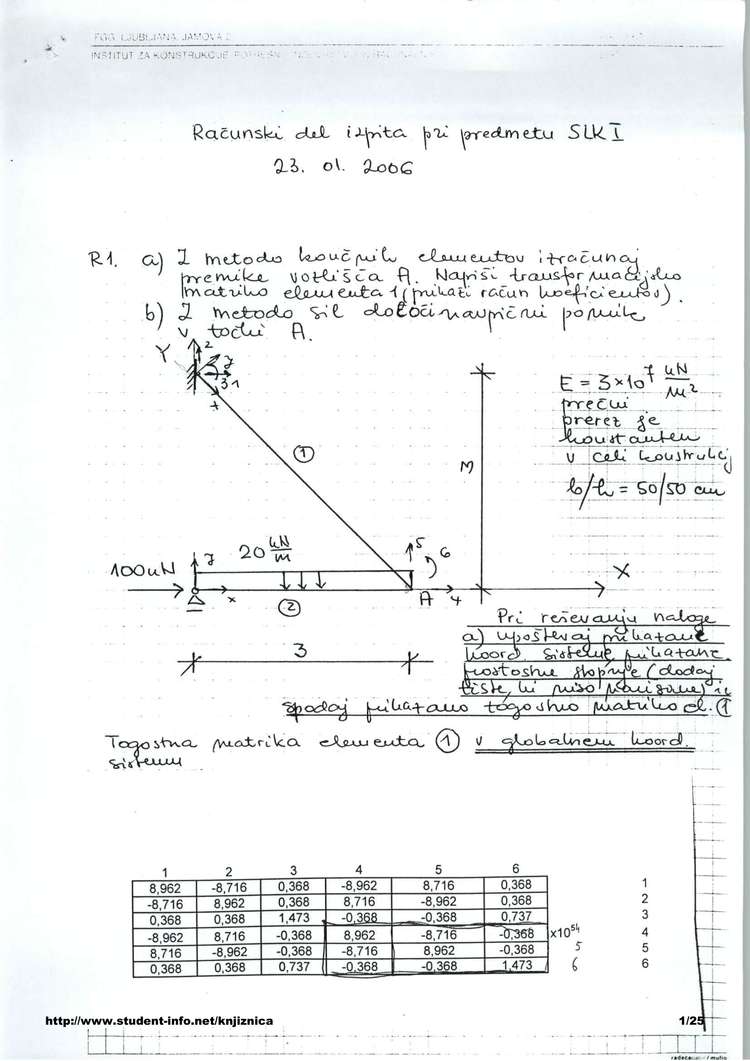 FGG LJUBLJANA, JAMOVA 2
INŠTITUT ZA KONSTRUKCIJE
Računski del izpita pri predmetu SLK I
23. 01. 2006
R1. a) Z metodo končnih elementov izračunaj
premike vozlišča A. Napiši transformacijsko
matriko elementa 1 (prikaži račun koeficientov).
b) Z metodo sil določi navpični pomik
v točki A.
Y
2
y
3
1
x
①
M
E = 3×10⁷ kN/m²
prečni
prerez je
konstanten
v celi konstrukcij
b/h = 50/50 cm
100 kN
y
20 kN/m
5
6
x
②
A
4
X
3
Pri reševanju naloge
a) upoštevaj prikazane
koord. sisteme, prikazane
prostostne stopnje (dodaj
tiste, ki niso narisane) in
spodaj prikazano togostno matriko el. ①
Togostna matrika elementa ① v globalnem koord.
sistemu
1 2 3 4 5 6
8,962 -8,716 0,368 -8,962 8,716 0,368 1
-8,716 8,962 0,368 8,716 -8,962 0,368 2
0,368 0,368 1,473 -0,368 -0,368 0,737 3
-8,962 8,716 -0,368 8,962 -8,716 -0,368 x10⁵ 4 4
8,716 -8,962 -0,368 -8,716 8,962 -0,368 5 5
0,368 0,368 0,737 -0,368 -0,368 1,473 6 6
http://www.student-info.net/knjiznica 1/25